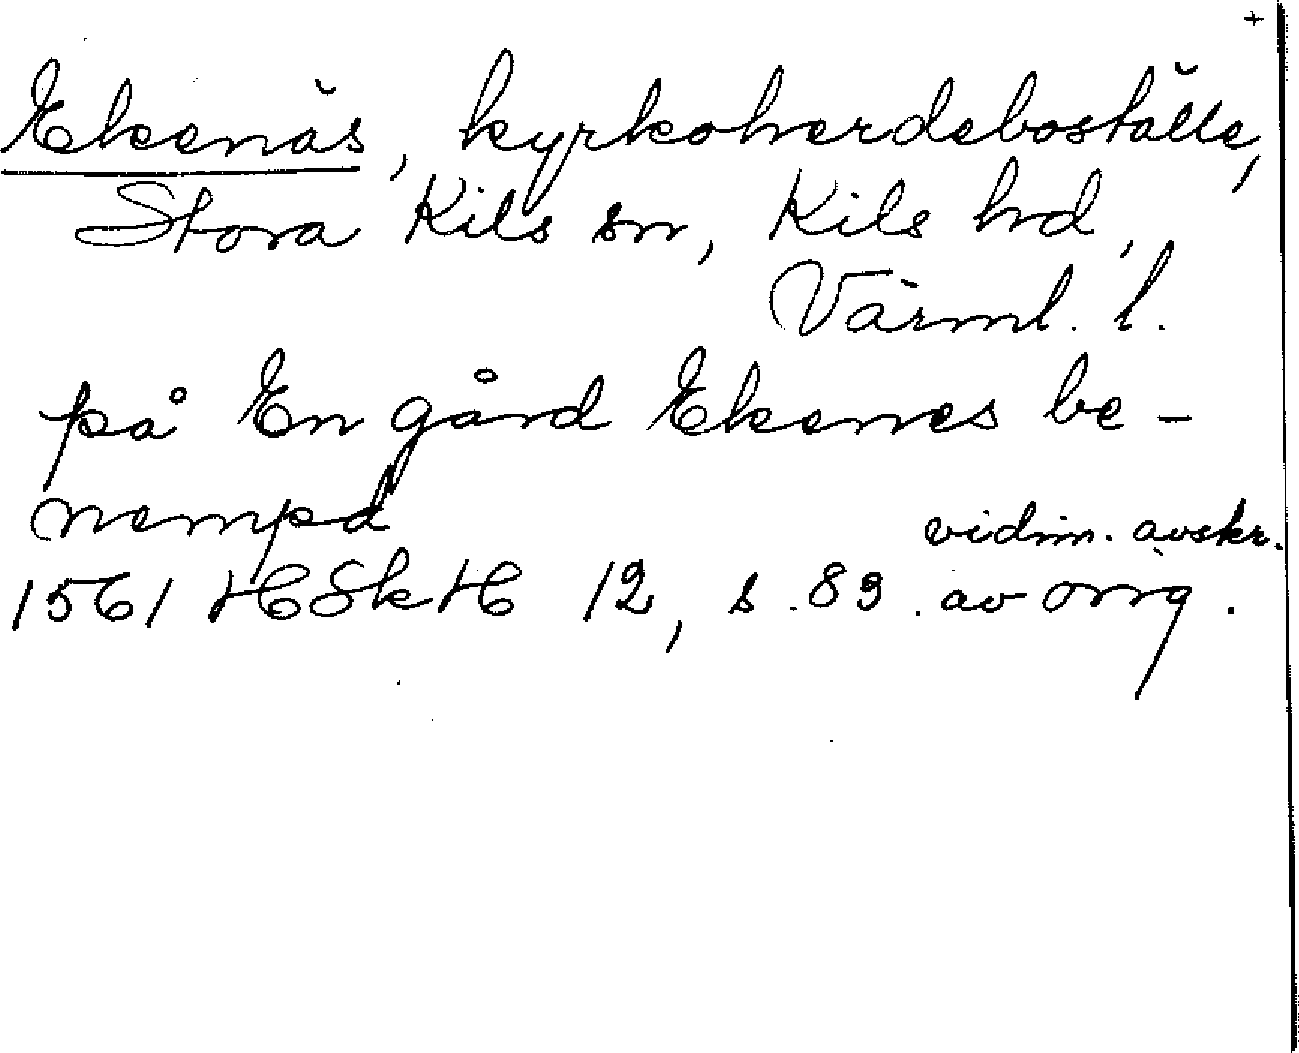 +
Ekenäs, kyrkoherdeboställe,
Stora Kils sn, Kils hd,
Värml. l.
på En gård Ekenes be-
nempd
vidim. avskr.
1561 HSkH 12, s. 89. av orig.